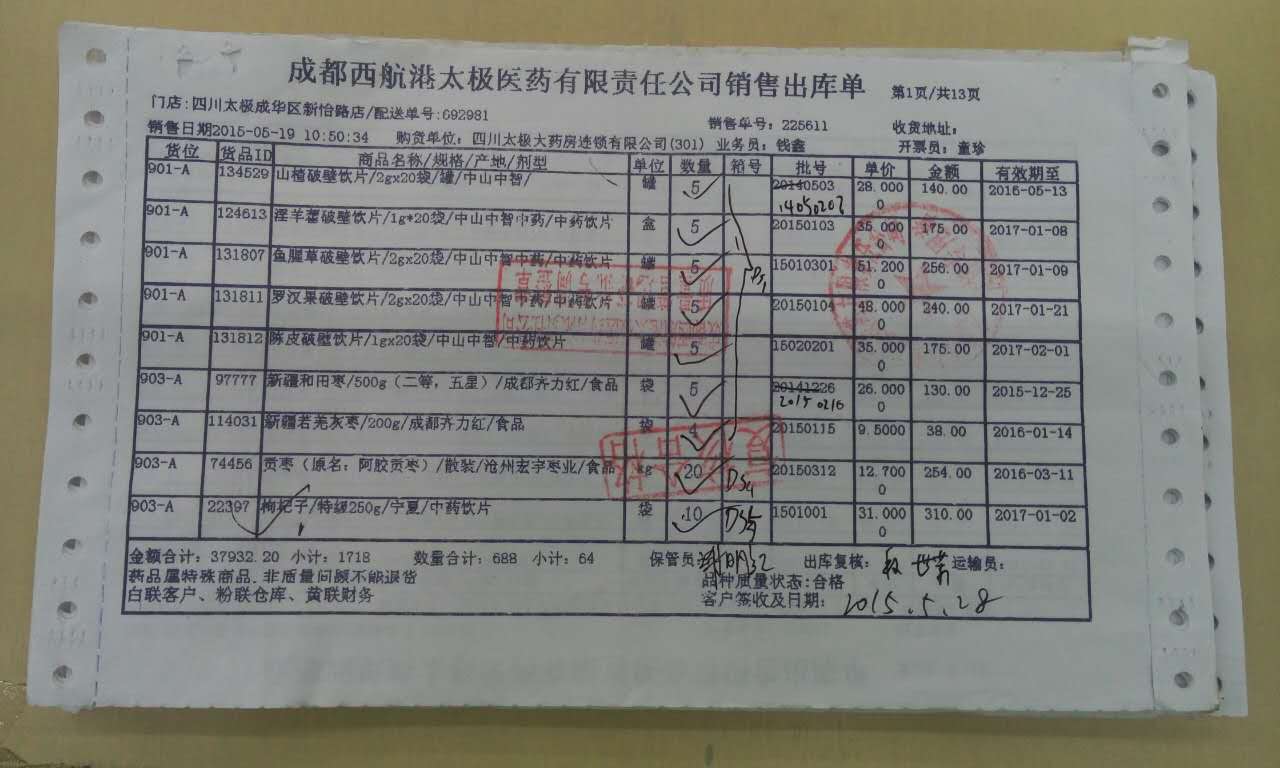 成都西航港太极医药有限责任公司销售出库单 第1页/共13页
门店:四川太极成华区新怡路店/配送单号:692981 销售单号: 225611 收货地址:
销售日期2015-05-19 10:50:34 购货单位: 四川太极大药房连锁有限公司(301) 业务员: 钱鑫 开票员: 童珍
货位 货品ID 商品名称/规格/产地/剂型 单位 数量 箱号 批号 单价 金额 有效期至
901-A 134529 山楂破壁饮片/2gx20袋/罐/中山中智/ 罐 5 20140503 28.000 140.00 2016-05-13
14050203 0
901-A 124613 淫羊藿破壁饮片/1g*20袋/中山中智中药/中药饮片 盒 5 20150103 35.000 175.00 2017-01-08
0
901-A 131807 鱼腥草破壁饮片/2gx20袋/中山中智中药/中药饮片 罐 5 15010301 51.200 256.00 2017-01-09
0
901-A 131811 罗汉果破壁饮片/2gx20袋/中山中智中药/中药饮片 罐 5 20150104 48.000 240.00 2017-01-21
0
901-A 131812 陈皮破壁饮片/1gx20袋/中山中智/中药饮片 罐 5 15020201 35.000 175.00 2017-02-01
0
903-A 97777 新疆和田枣/500g(二等,五星)/成都齐力红/食品 袋 5 20141226 26.000 130.00 2015-12-25
20150216 0
903-A 114031 新疆若羌灰枣/200g/成都齐力红/食品 袋 4 20150115 9.5000 38.00 2016-01-14
903-A 74456 贡枣(原名:阿胶贡枣)/散装/沧州宏宇枣业/食品 kg 20 DS4 20150312 12.700 254.00 2016-03-11
0
903-A 22397 枸杞子/特级250g/宁夏/中药饮片 袋 10 DS5 1501001 31.000 310.00 2017-01-02
0
金额合计: 37932.20 小计: 1718 数量合计: 688 小计: 64 保管员: 出库复核: 运输员:
药品属特殊商品.非质量问题不能退货 品种质量状态:合格
白联客户、粉联仓库、黄联财务 客户签收及日期: 2015.5.28